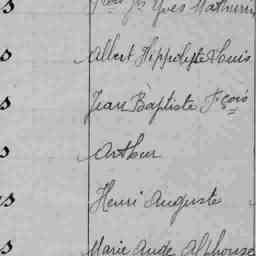 s Yves Mathurin
s Albert Hippolyte Louis
s Jean Baptiste Fçois
s Arthur
s Henri Auguste
s Marie Ange Alphonse